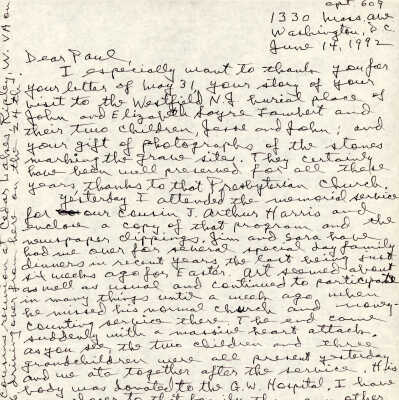 apt 609
1330 Mass. Ave
Washington, D.C.
June 14, 1992
Dear Paul,
I especially want to thank you for
your letter of May 31, your story of your
visit to the Westfield N.J. burial place of
John and Elizabeth Sayre Lambert and
their two children, Jesse and John; and
your gift of photographs of the stones
marking the grave sites. They certainly
have been well preserved for all these
years, thanks to that Presbyterian Church.
Yesterday I attended the memorial service
for our Cousin J. Arthur Harris and
enclose a copy of that program and the
newspaper clippings. Jim and have
had me over for several special day family
dinners in recent years, the last being just
weeks ago for Easter. Art seemed about
as well as usual and continued to participate
in many things until a week ago when
he missed his normal church and money-
counting service there. The end came
suddenly with a massive heart attack.
As you see the two children and three
grandchildren were all present yesterday
and we ate together after the service. His
body was donated to the G.W. Hospital. I have
closer to that family than other
reunion at Cedar Lakes, Ripley, W. VA on
over from here on the 24th.